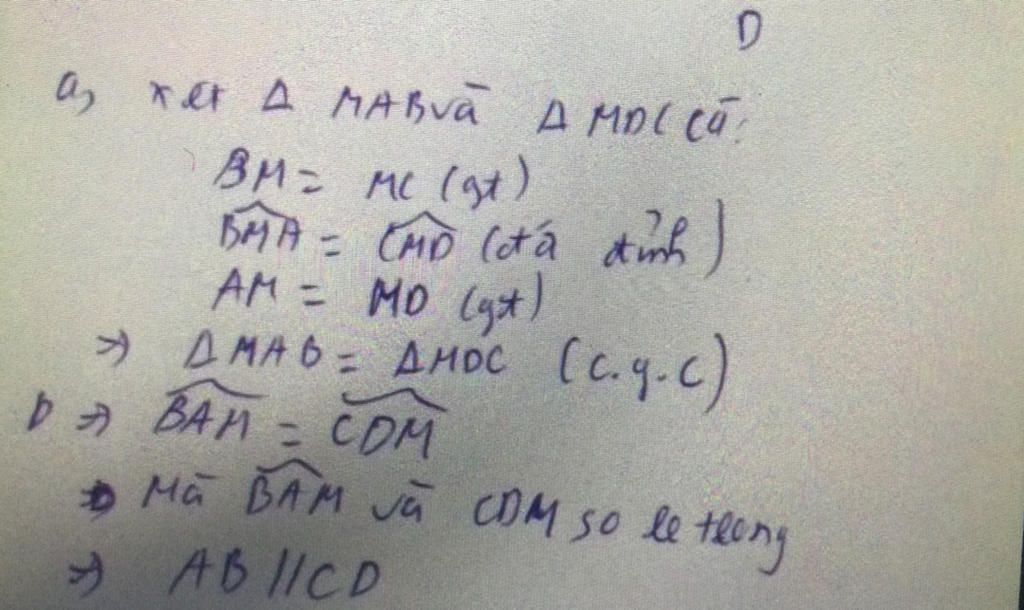 D
a, xét Δ MAB và Δ MDC có:
BM = MC (gt)
\widehat{BMA} = \widehat{CMD} (đđ đỉnh)
AM = MD (gt)
=> ΔMAB = ΔMDC (c.g.c)
b => \widehat{BAM} = \widehat{CDM}
Mà \widehat{BAM} và CDM so le trong
=> AB // CD